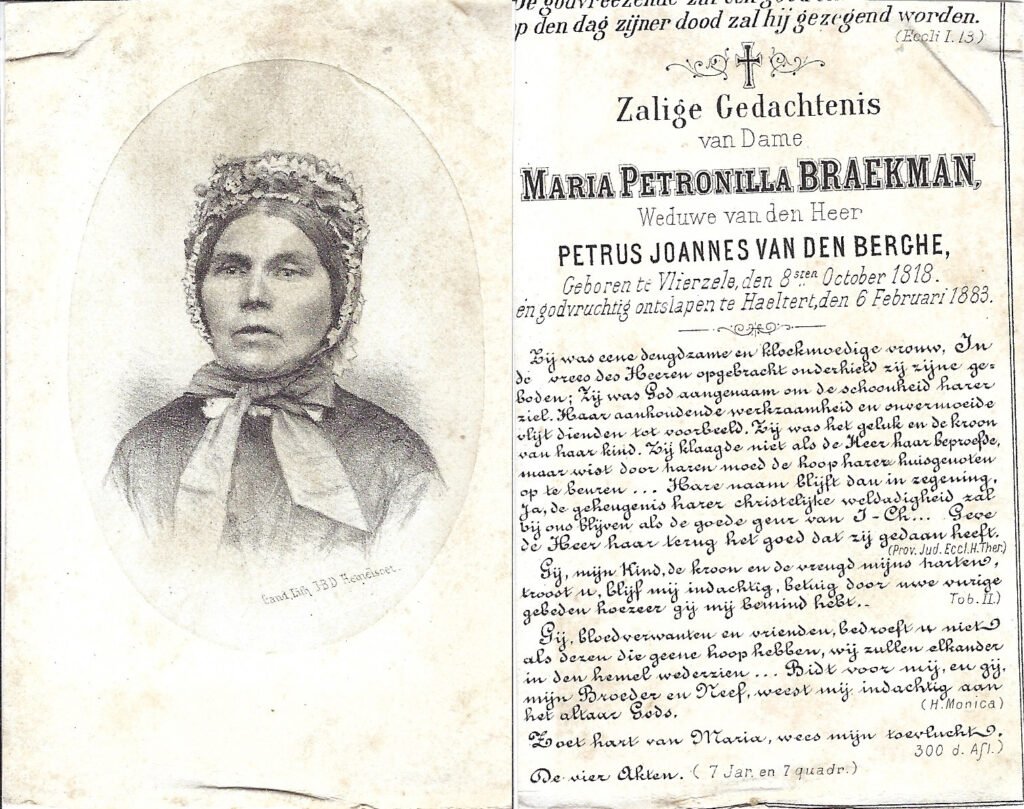 Gand, Lith. J.B.D. Hemelsoet.
De godvreezende zal
op den dag zijner dood zal hij gezegend worden.
(Eccli I. 13.)
Zalige Gedachtenis
van Dame
MARIA PETRONILLA BRAEKMAN,
Weduwe van den Heer
PETRUS JOANNES VAN DEN BERGHE,
Geboren te Vlierzele, den 8sten October 1818.
en godvruchtig ontslapen te Haeltert, den 6 Februari 1883.
Zij was eene deugdzame en kloekmoedige vrouw, In
de vrees des Heeren opgebracht onderhield zij zijne ge-
boden; Zij was God aangenaam om de schoonheid harer
ziel. Haar aanhoudende werkzaamheid en onvermoeide
vlijt dienden tot voorbeeld. Zij was het geluk en de kroon
van haar kind. Zij klaagde niet als de Heer haar beproefde,
maar wist door haren moed de hoop harer huisgenoten
op te beuren ... Hare naam blijft dan in zegening,
Ja, de geheugenis harer christelijke weldadigheid zal
bij ons blijven als de goede geur van J-Ch... Geve
de Heer haar terug het goed dat zij gedaan heeft.
(Prov. Jud. Eccl. H. Ther.)
Gij, mijn Kind, de kroon en de vreugd mijns harten,
troost u, blijf mij indachtig, betuig door uwe vurige
gebeden hoezeer gij mij bemind hebt..
Tob. II.)
Gij, bloedverwanten en vrienden, bedroeft u niet
als dezen die geene hoop hebben, wij zullen elkander
in den hemel wederzien ... Bidt voor mij, en gij,
mijn Broeder en Neef, weest mij indachtig aan
het altaar Gods.
(H. Monica)
Zoet hart van Maria, wees mijn toevlucht.
300 d. Afl.)
De vier Akten. (7 Jar. en 7 quadr.)